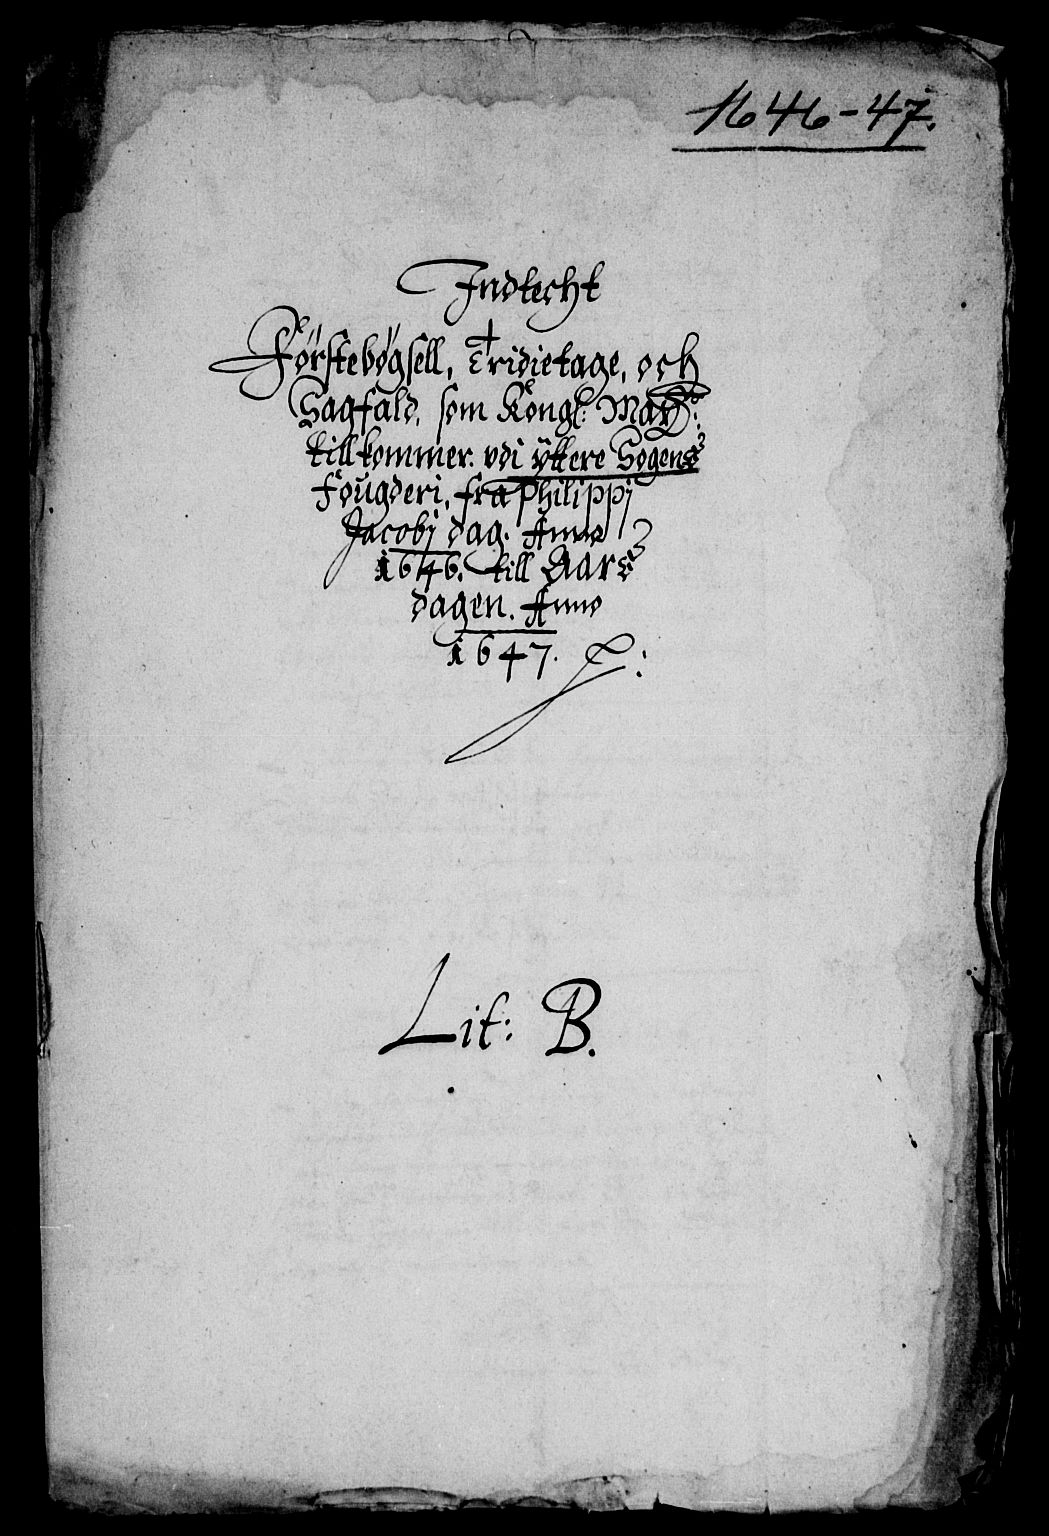 1646-47.
Indtecht
Førstebøgsell, Tridietage, och
Sagfald, som Kongl: Maytt:
tillkommer. vdi ÿttere Sogens
Fougderi, fra Philippi
Jacobj dag. Anno
1646. till Aars
dagen. Anno
1647.
Lit: B.